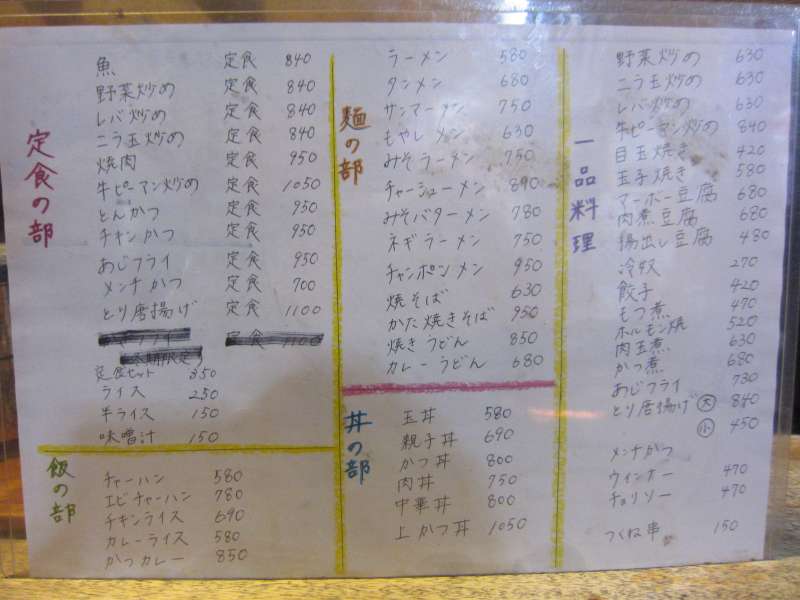 定食の部
魚 定食 840
野菜炒め 定食 840
レバ炒め 定食 840
ニラ玉炒め 定食 840
焼肉 定食 950
牛ピーマン炒め 定食 1050
とんかつ 定食 950
チキンかつ 定食 950
あじフライ 定食 950
メンチかつ 定食 700
とり唐揚げ 定食 1100
定食 1100
冬期限定
定食セット 350
ライス 250
半ライス 150
味噌汁 150
飯の部
チャーハン 580
エビチャーハン 780
チキンライス 690
カレーライス 580
かつカレー 850
麺の部
ラーメン 580
タンメン 680
サンマーメン 750
もやしメン 630
みそラーメン 750
チャーシューメン 890
みそバターメン 780
ネギラーメン 750
チャンポンメン 950
焼そば 630
かた焼きそば 950
焼きうどん 850
カレーうどん 680
丼の部
玉丼 580
親子丼 690
かつ丼 800
肉丼 750
中華丼 800
上かつ丼 1050
一品料理
野菜炒め 630
ニラ玉炒め 630
レバ炒め 630
牛ピーマン炒め 840
目玉焼き 420
玉子焼き 580
マーボー豆腐 680
肉煮豆腐 680
揚出し豆腐 480
冷奴 270
餃子 420
もつ煮 470
ホルモン焼 520
肉玉煮 630
かつ煮 680
あじフライ 730
とり唐揚げ 大 840
小 450
メンチかつ
ウインナー 470
チョリソー 470
つくね串 150